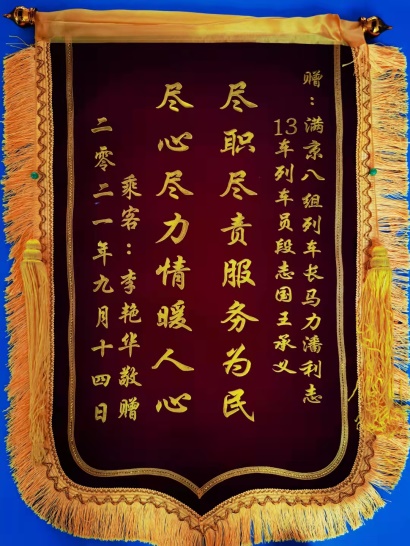 赠：满京八组列车长马力潘利志
13车列车员段志国王承义
尽职尽责服务为民
尽心尽力情暖人心
乘客：李艳华敬赠
二零二一年九月十四日